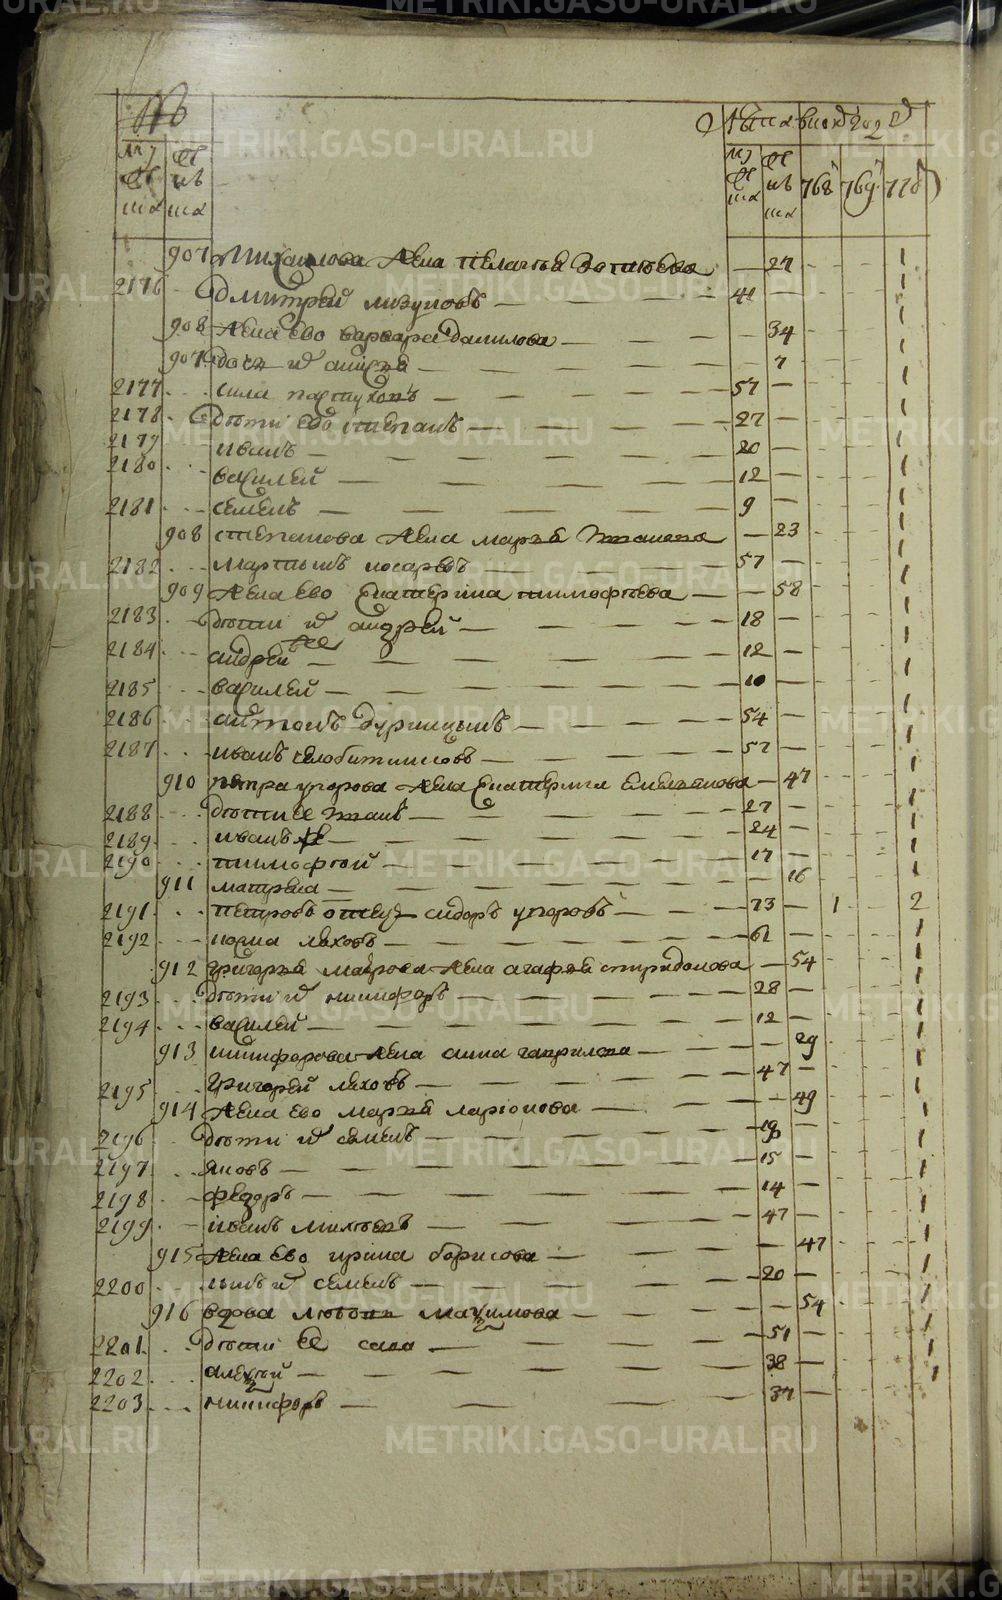 №
мужеска женска
мужеска женска 768 769 770
907 Михаилова жена пелагея — 27 - - 1
2176 Дмитрей лизуновъ — 41 — - - 1
908 Жена ево варвара данилова — 34 - - 1
907 дочь их — 7 - - 1
2177 сила пастуховъ — 57 — - - 1
2178 дѣти ево степанъ — 27 — - - 1
2179 иванъ — 20 — - - 1
2180 василей — 12 — - - 1
2181 семенъ — 9 — - - 1
908 степанова жена марья — 23 - - 1
2182 мартынъ косаревъ — 57 — - - 1
909 жена ево екатерина тимофѣева — 58 - - 1
2183 дѣти их андрей — 18 — - - 1
2184 андрей — 12 — - - 1
2185 василей — 10 — - - 1
2186 антонъ — 54 — - - 1
2187 иванъ — 57 — - - 1
910 петра упорова жена екатерина емельянова — 47 - - 1
2188 дѣти ее — 27 — - - 1
2189 иванъ — 24 — - - 1
2190 тимофѣй — 17 — - - 1
911 матрена — 16 - - 1
2191 петровъ отецъ сидоръ упоровъ — 73 — 1 - 2
2192 козма ляховъ — 61 — - - 1
912 григорья жена агафья спиридонова — 54 - - 1
2193 дѣти их никифоръ — 28 — - - 1
2194 василей — 12 — - - 1
913 никифорова жена анна гаврилова — 29 - - 1
2195 григорей ляховъ — 47 — - - 1
914 жена ево марья ларионова — 49 - - 1
2196 дѣти их семенъ — 19 — - - 1
2197 яковъ — 15 — - - 1
2198 федоръ — 14 — - - 1
2199 иванъ — 47 — - - 1
915 жена ево ирина борисова — 47 - - 1
2200 сынъ их семенъ — 20 — - - 1
916 вдова любовь максимова — 54 - - 1
2201 дѣти ее сава — 51 — - - 1
2202 алексей — 38 — - - 1
2203 никифоръ — 37 —
METRIKI.GASO-URAL.RU